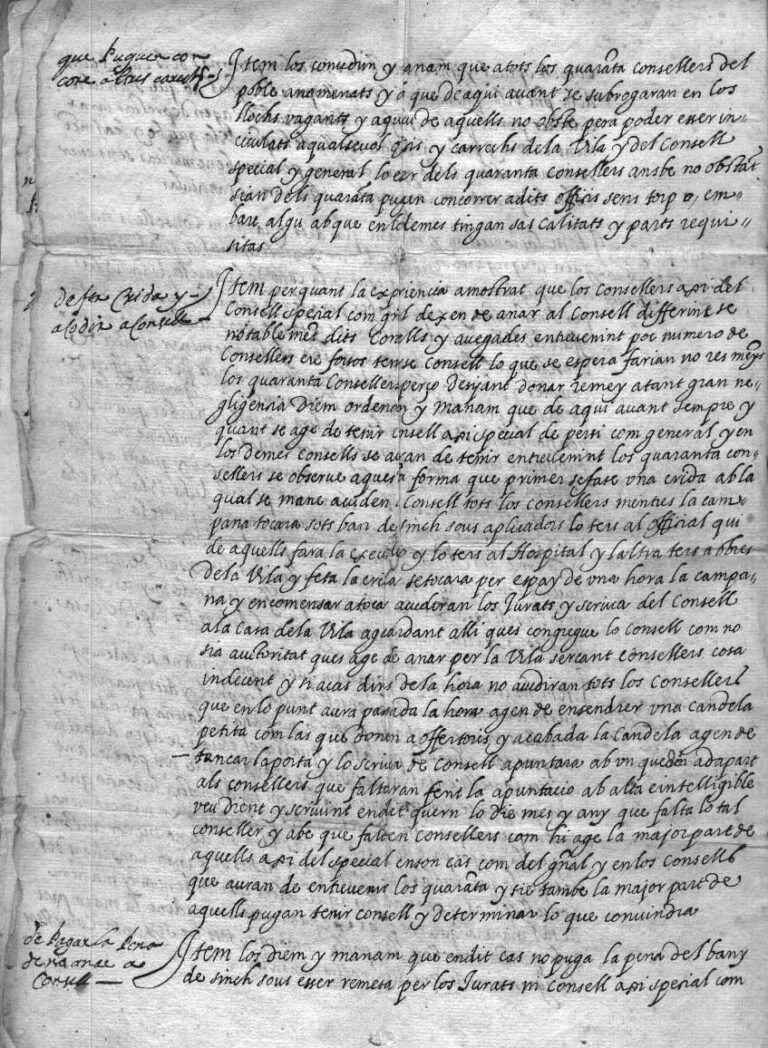 que puguen con
corre altres carrechs
Item los convidim y anam que atots los quaranta consellers del
poble anomenats y a que de aqui avant se subrogaran en los
llochs vagants y aquai de aquells no obste pera poder esser in-
ciculats aqualsevol y carrechs dela Vila y del Consell
special y general lo esser dels quaranta consellers ans be no obstat
sian dels quarata pugan concorrer adits officis sens torp o em-
bare algu abque enlodemes tingan sas calitats y parts requi-
sitas
de fer Crida y
acodir a Consell
Item perquant la expriencia amostrat que los Consellers axi del
Consell special com gnl dexen de anar al Consell differint se
notable met dits y avegades entrevenint poc numero de
Consellers ere forsos tense Consell lo que se espera farian no res meyns
los quaranta Consellers perço desijant donar remey atant gran ne-
gligencia Diem ordenam y Manam que de aqui avant sempre y
quant se age de tenir consell axi special de per si com general y en
los demes consells se auran de tenir entrevenint los quaranta con-
sellers se observe aquesta forma que primer se fasse vna crida abla
qual se mane acuden Consell tots los consellers mentres la cam-
pana tocara sots ban de sinch sous aplicadors lo ters al official qui
de aquells fara la execuo y lo ters al Hospital y laltra ters a obres
dela Vila y feta la crida setocara per espay de vna hora la campa-
na y encomensar atoca acudiran los Jurats y scriva del Consell
ala Casa dela Vila aguardant alli ques congregue lo Consell com no
sia auctoritat ques age de anar per la Vila sercant consellers cosa
indecent y si acas dins dela hora no acudiran tots los Consellers
que en lo punt aura passada la hora agen de ensendrer vna candela
petita com las que donen a offertoris y acabada la candela agen de
tancar la porta y lo scriva de Consell apuntara ab vn quern adapart
als consellers que faltaran fent la apuntacio ab alta e intelligible
veu dient y scrivint en dit quern lo die mes y any que falta lo tal
Conseller y abe que falten Consellers com hi age la major part de
aquells axi del special en son cas com del gnal y en los Consells
que auran de entrevenir los quarata y sie tambe la major part de
aquells pugan tenir consell y determinar lo que convindra
de Pagar la Pena
de no anar a
Consell
Item los diem y manam que en dit cas no puga la pena del bany
de sinch sous esser remesa per los Jurats ni Consell axi special com